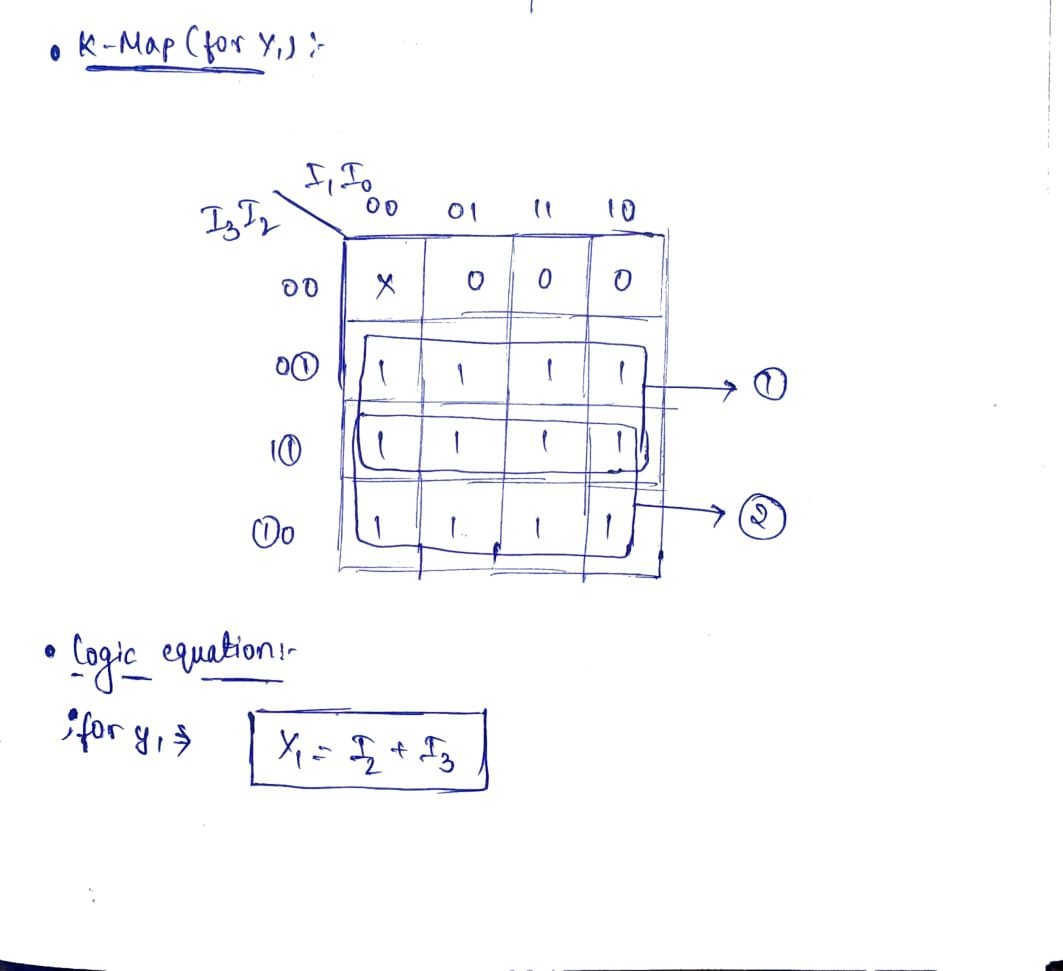 • K-Map (for Y₁) :-
I₁ I₀
I₃ I₂
00 01 11 10
00 X 0 0 0
01 1 1 1 1
→ ①
11 1 1 1 1
10 1 1 1 1
→ ②
• Logic equation:-
for y₁ →
Y₁ = I₂ + I₃